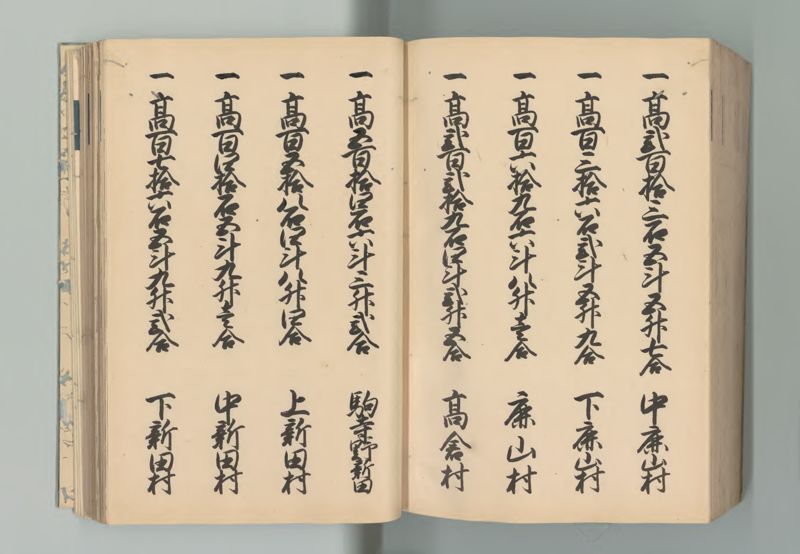 一 高弐百拾三石五斗五升七合 中鹿山村
一 高百三拾六石弐斗五升九合 下鹿山村
一 高百六拾九石六斗八升壱合 鹿山村
一 高弐百弐拾九石四斗弐升五合 高倉村
一 高五百拾四石六斗三升弐合 駒寺野新田
一 高百五拾八石四斗八升四合 上新田村
一 高百四拾石五斗九升壱合 中新田村
一 高百七拾六石五斗九升弐合 下新田村